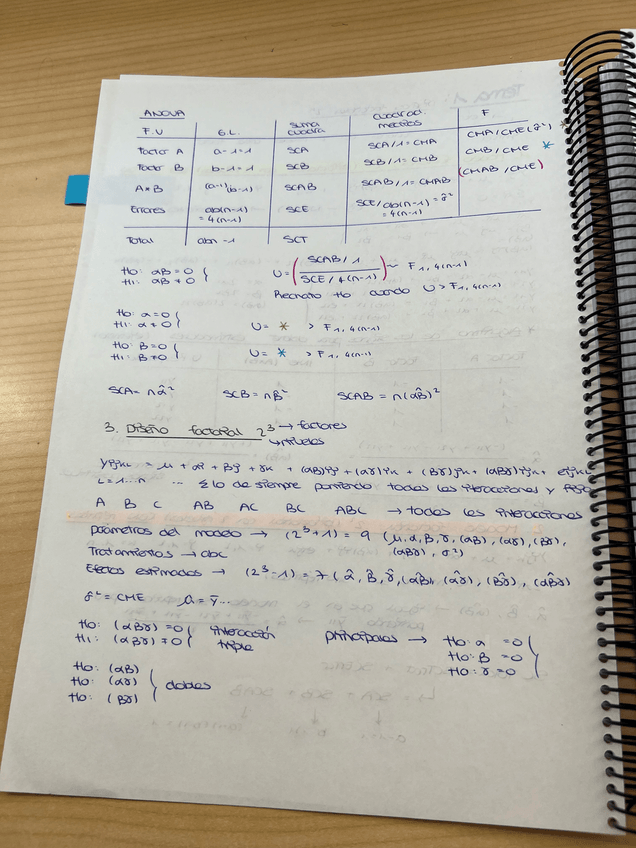 ANOVA
F.V G.L. Suma cuadra cuadrad. medios F
Factor A a-1=1 SCA SCA/1=CMA CMA/CME(σ̂²) *
Factor B b-1=1 SCB SCB/1=CMB CMB/CME *
A*B (a-1)(b-1) SCAB SCAB/1=CMAB (CMAB/CME)
Errores ab(n-1) =4(n-1) SCE SCE/ab(n-1)=σ̂² =4(n-1)
Total abn-1 SCT
H0: αβ=0
H1: αβ≠0 } U=(SCAB/1 / SCE/4(n-1)) ~ F1,4(n-1)
Rechazo H0 cuando U>F1,4(n-1)
H0: α=0
H1: α≠0 } U= * > F1,4(n-1)
H0: β=0
H1: β≠0 } U= * > F1,4(n-1)
SCA=nα̂² SCB=nβ̂² SCAB=n(α̂β)²
3. Diseño factorial 2³ → factores
↳ niveles
yijkl = μ + αi + βj + γk + (αβ)ij + (αγ)ik + (βγ)jk + (αβγ)ijk + eijkl
l=1...n ... Σ lo de siempre poniendo todas las interacciones y
A B C AB AC BC ABC → todas las interacciones
parámetros del modelo → (2³+1)=9 (μ,α,β,γ,(αβ),(αγ),(βγ),
(αβγ),σ²)
Tratamientos → abc
Efectos estimados → (2³-1)=7 (α̂,β̂,γ̂,(αβ),(α̂γ),(β̂γ),(αβ̂γ)
σ̂²=CME μ̂=ȳ...
H0: (αβγ)=0
H1: (αβγ)≠0 } interacción triple
principales → H0: α =0
H0: β =0
H0: γ=0 }
H0: (αβ)
H0: (αγ)
H0: (βγ) } dobles